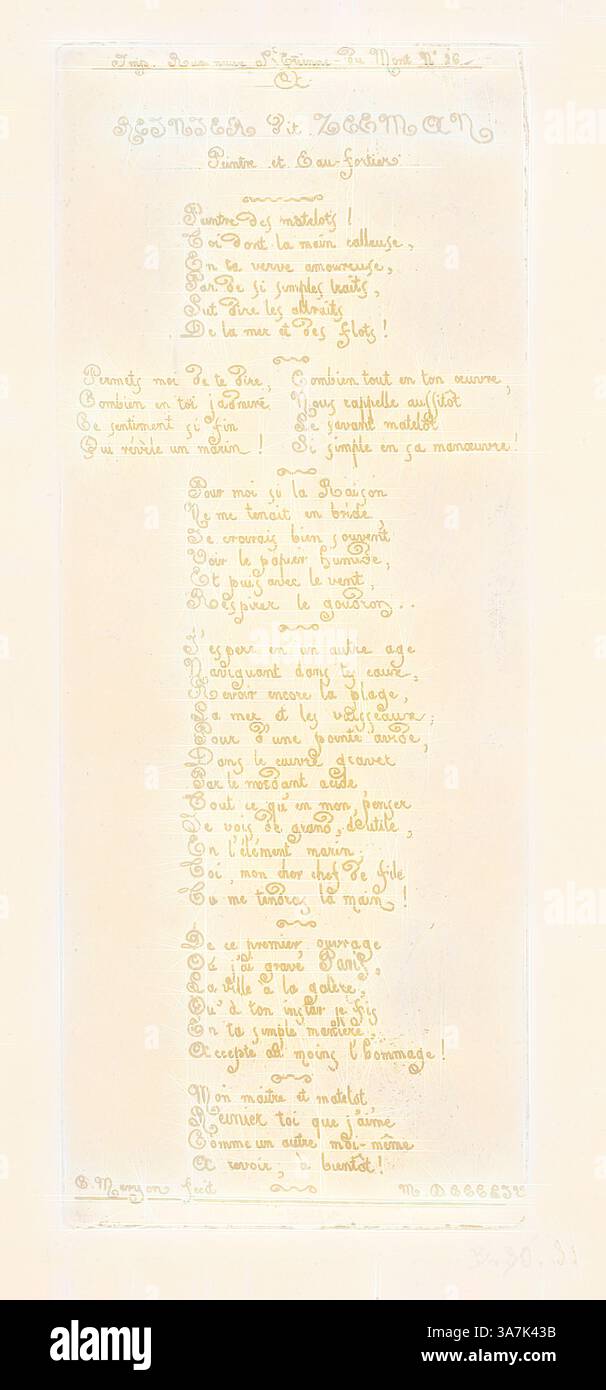 Imp. Rue neuve St Etienne-du Mont No 26
A
REINIER dit ZEEMAN
Peintre et Eau-fortier.
Peintre des matelots !
Toi dont la main calleuse,
En ta verve amoureuse,
Par de si simples traits,
Sut dire les attraits
De la mer et des flots !
Permets moi de te dire,
Combien en toi j'admire
Ce sentiment si fin
Qui révèle un marin !
Combien tout en ton œuvre,
Nous rappelle aussitôt
Le savant matelot
Si simple en sa manœuvre !
Pour moi si la Raison
Ne me tenait en bride,
Je croirais bien souvent
Voir le papier humide,
Et puis avec le vent,
Respirer le goudron..
J'espère en un autre age
Naviguant dans tes eaux,
Revoir encore la plage,
La mer et les vaisseaux;
Pour d'une pointe avide,
Dans le cuivre graver
Par le mordant acide
Tout ce qu'en mon penser
Je vois de grand, d'utile,
En l'élément marin.
Toi, mon cher chef de file
Tu me tendras la main !
De ce premier ouvrage
Où j'ai gravé Paris,
La ville à la galère,
Qu'à ton instar je fis
En ta simple manière,
Accepte au moins l'hommage !
Mon maître et matelot
Reinier toi que j'aime
Comme un autre moi-même
Au revoir, à bientôt !
C. Meryon fecit
M. DCCCLIV
alamy
Image ID: 3A7K43B
www.alamy.com